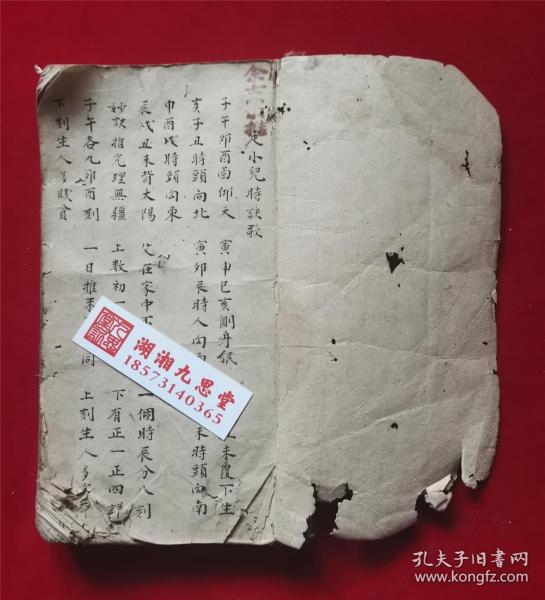 定小兒時訣歌
子午卯酉面仰天 寅申巳亥側身眠 未覆下生
亥子丑時頭向北 寅卯辰時人向 未時頭向南
申酉戌時頭向東
辰戌丑未背太陽 父在家中不 一個時辰分八刻
妙訣推究理無疆 上數初一 下有正一正四詳
子午各九卯酉刻 一日推 同 上刻生人多
下刻生人多賤貧
湖湘九思堂
18573140365
孔夫子旧书网
www.kongfz.com